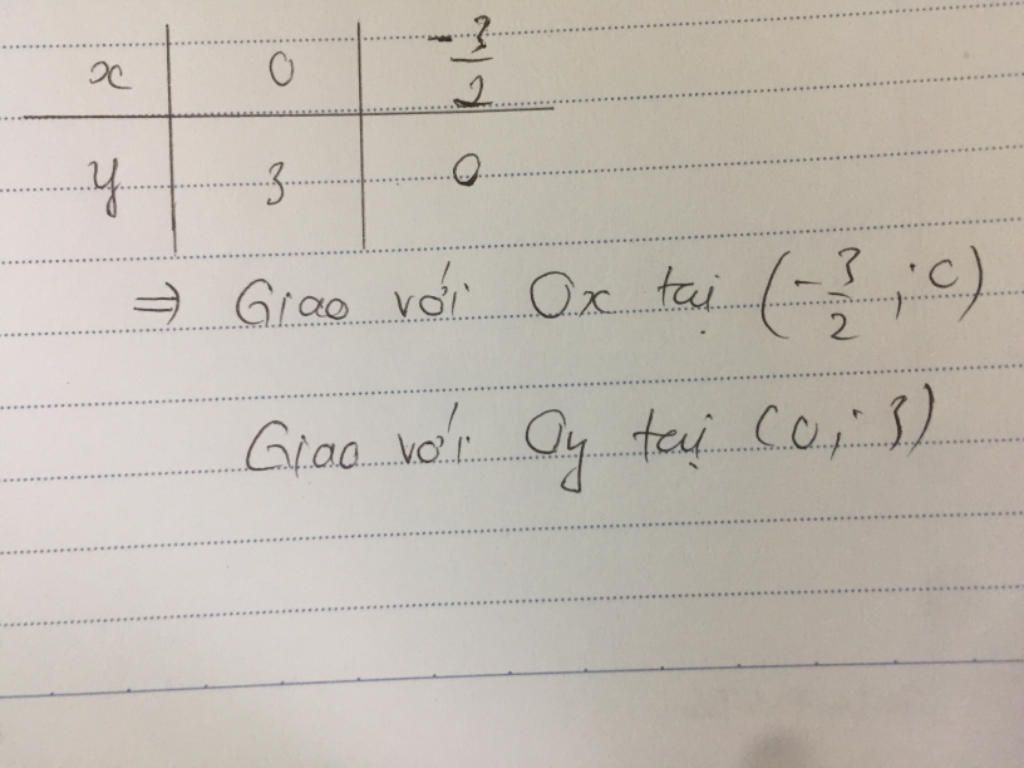 x 0 -3/2
y 3 0
⇒ Giao với Ox tại (-3/2; 0)
Giao với Oy tại (0; 3)